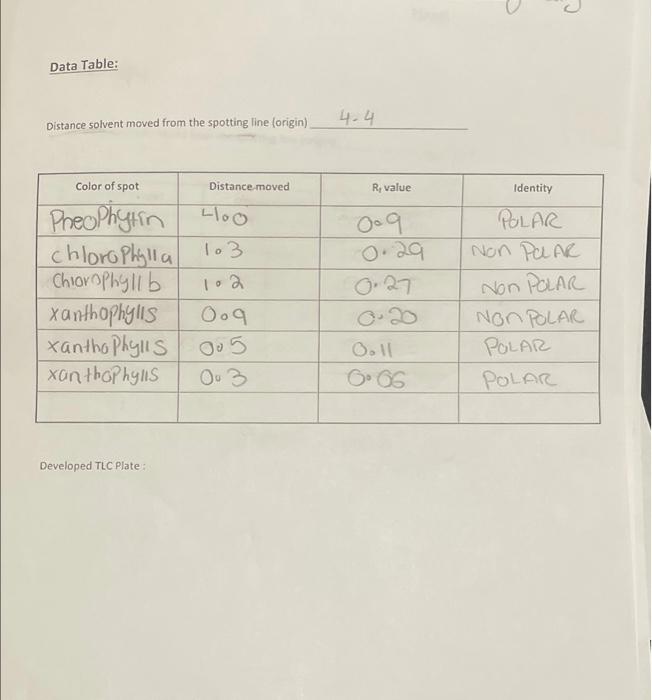 Data Table:
Distance solvent moved from the spotting line (origin) 4.4
Color of spot Distance moved Rf value Identity
Pheophytin 4.0 0.9 POLAR
chlorophylla 1.3 0.29 NON POLAR
Chlorophyll b 1.2 0.27 NON POLAR
xanthophylls 0.9 0.20 NON POLAR
xanthophylls 0.5 0.11 POLAR
xanthophylls 0.3 0.06 POLAR
Developed TLC Plate :